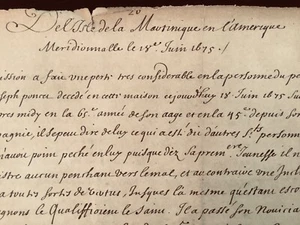 20
De l'Isle de la Martinique en l'amerique
Meridionnalle le 18e. Juin 1675 ./
ission a faiv une perte tres considerable en la personne du pe
Joseph ponce decedé en cette maison ce jourdhuy 18 Juin 1675 su
res midy en la 65e. année de son aage et en la 45e. depuis son
pagnie, il se peu dire de lay ce qui a est dit d'autres Sts. personn
n'auoir poim peché en luy puisque dez sa prem ere Jeunesse il n
aucun penchant vers le mal, et au contraire vne Incl
a toutes sortes de vertus, Jusques la mesme qu'estant esco
gnons le Qualiffioient le saint. Il a passé son Nouiria